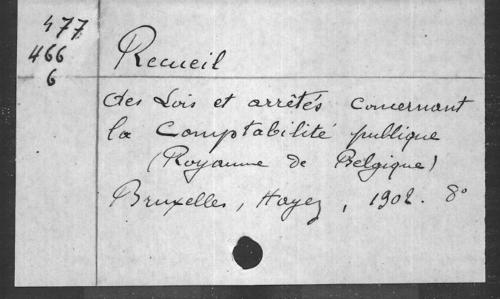 477
466
6
Recueil
des Lois et arrêtés concernant
la Comptabilité publique
(Royaume de Belgique)
Bruxelles, Hayez, 1902. 8°